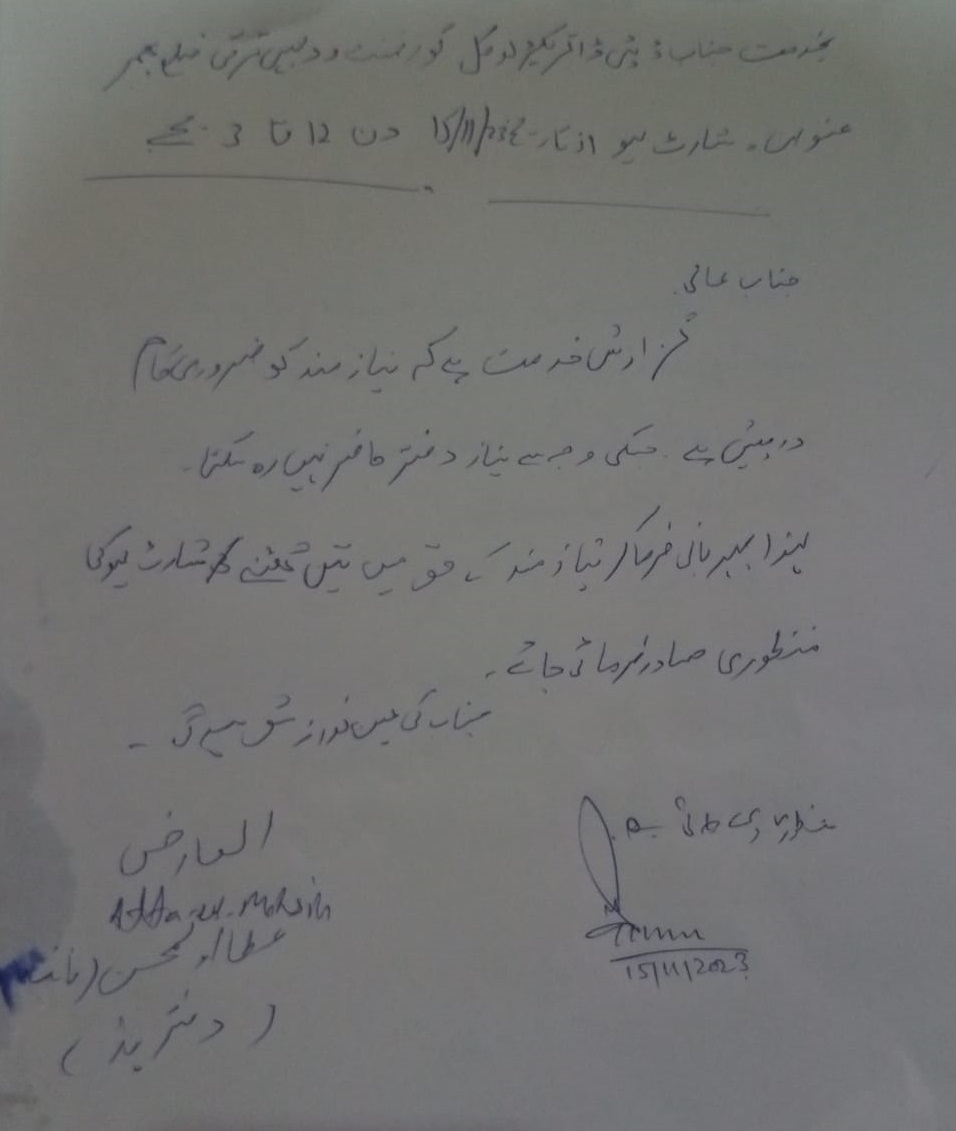 بخدمت جناب ڈپٹی ڈائریکٹر لوکل گورنمنٹ و دیہی ترقی ضلع بھمبر
عنوان۔ شارٹ لیو از تار 15/11/23 دن 12 تا 3 بجے
جناب عالی
گزارش خدمت ہے کہ نیاز مند کو ضروری کام
درپیش ہے۔ جسکی وجہ سے نیاز دفتر حاضر نہیں رہ سکتا۔
لہذا مہربانی فرما کر نیاز مند کے حق میں تین گھنٹے کی شارٹ لیو کی
منظوری صادر فرمائی جائے۔
جناب کی عین نوازش ہوگی۔
العارض
Atta-ul-Mohsin
عطاء المحسن
(دفتر ہذا)
منظوری دی جاتی ہے۔
15/11/2023